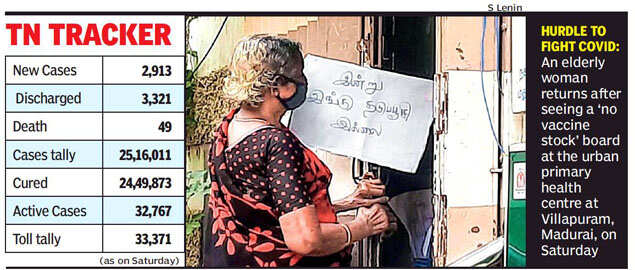 S Lenin
TN TRACKER
New Cases 2,913
Discharged 3,321
Death 49
Cases tally 25,16,011
Cured 24,49,873
Active Cases 32,767
Toll tally 33,371
(as on Saturday)
இன்று
இங்கு தடுப்பூசி
இல்லை
HURDLE TO
FIGHT COVID:
An elderly
woman
returns after
seeing a ‘no
vaccine
stock’ board
at the urban
primary
health
centre at
Villapuram,
Madurai, on
Saturday